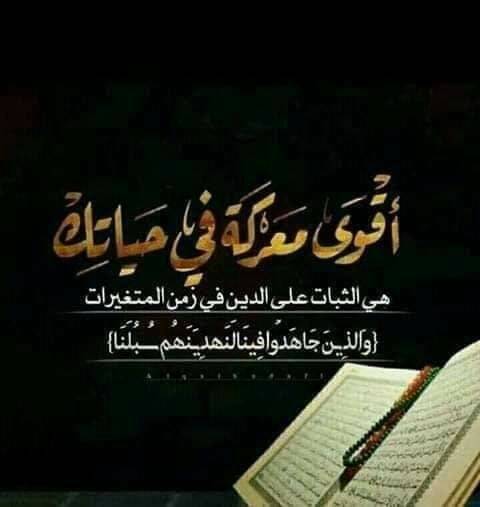 أقْوَى مَعْرَكَة في حَيَاتِكْ
هي الثبات على الدين في زمن المتغيرات
{وَالذِينَ جَاهَدُوا فِينَا لَنَهدِيَنَهُم سُبُلَنَا}